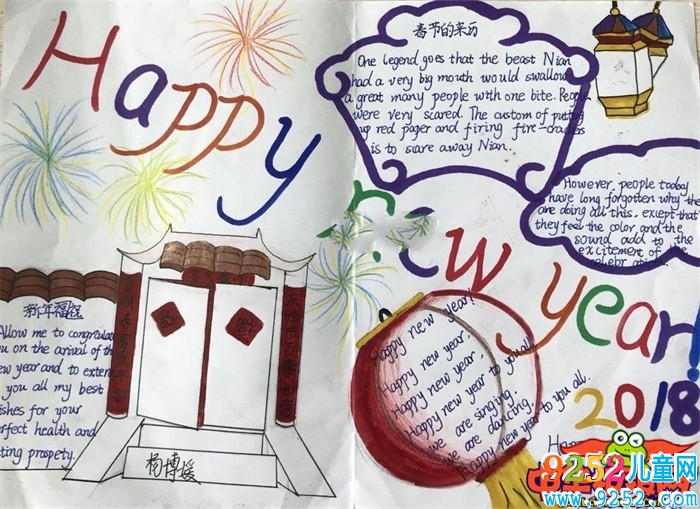 Happy
new year!
2018
春节的来历
One legend goes that the beast Nian
had a very big mouth would swallow
a great many people with one bite. People
were very scared. The custom of putting
up red paper and firing fire-crackers
is to scare away Nian.
However, people today
have long forgotten why the
are doing all this, except that
they feel the color and the
sound add to the
excitement of
celebration
新年福
Allow me to congratulat
you on the arrival of the
new year and to extend
you all my best
wishes for your
perfect health and
lasting prospety.
杨博媛
Happy new year!
Happy new year,
Happy new year,
Happy new year to you all
we are singing,
we are dancing,
Happy new year to you all.
9252儿童网
www.9252.com